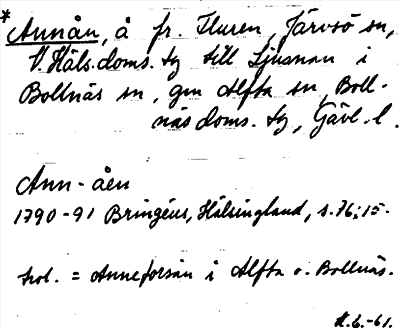 *Annån, å fr. Fluren, Järvsö sn,
V. Häls. doms. tg till Ljusnan i
Bollnäs sn, gm Alfta sn, Boll-
näs doms. tg, Gävl. l.
Ann-åen
1790-91 Bringéus, Hälsingland, s. 76; 15.
= Anneforsån i Alfta o. Bollnäs.
6.-61.